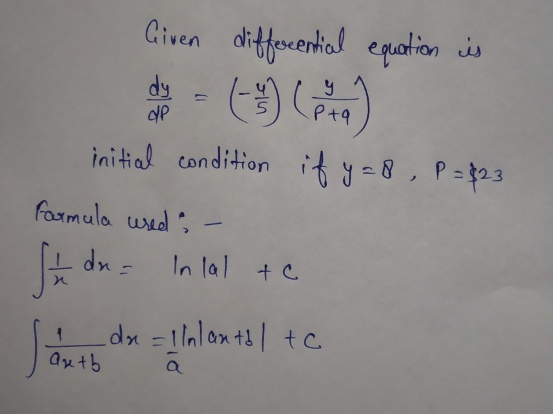 Given differential equation is
dy/dP = (-4/5) (y/P+9)
initial condition if y = 8, P = $23
Formula used : -
∫ 1/x dx = ln |a| + c
∫ 1/ax+b dx = 1/a ln|ax+b| + c